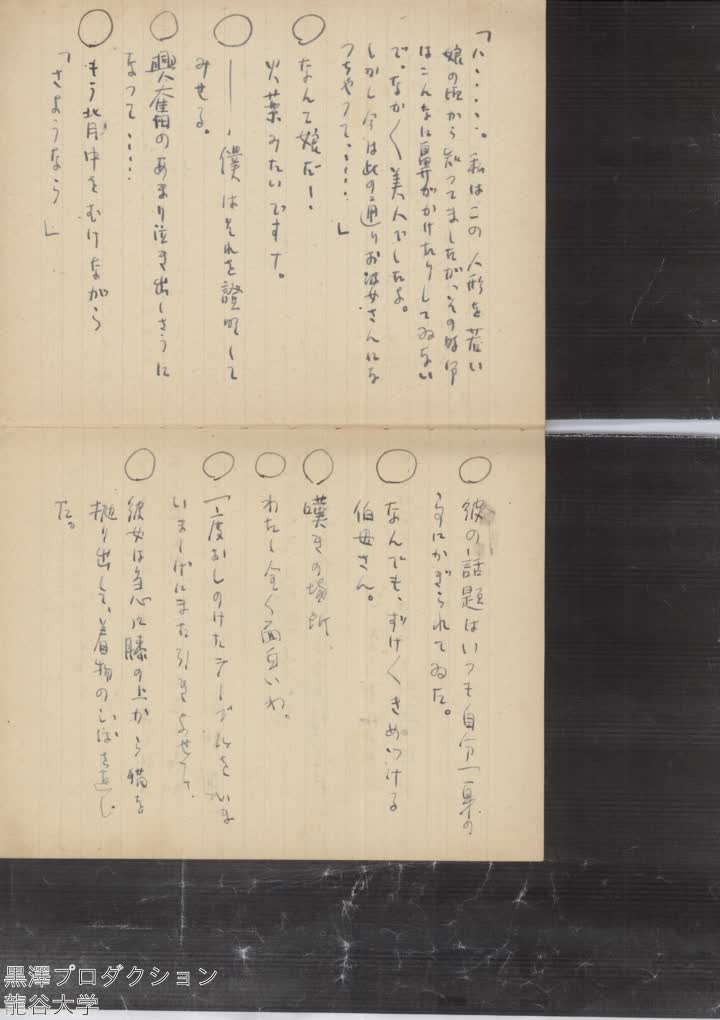 「ハ、、、、、。私はこの人形を若い
娘の頃から知ってましたが、その時分
はこんなに鼻がかけたりしてゐない
で、なかく美人でしたよ。
しかし今は此の通りお婆さんにな
つちやつて、、、、、」
○ なんて娘だ!
火薬みたいです。
○ ――、僕はそれを證明して
みせる。
○ 興奮のあまり泣き出しさうに
なつて、、、、、
○ もう背中をむけながら
「さようなら」
○ 彼の話題はいつも自分一身の
にかぎられてゐた。
○ なんでも、ずけくきめつける
伯母さん。
○ 嘆きの場所
○ わたし全く面白いわ。
○ 一度おしのけたテーブルをいま
いましげにまた引きよせて、
○ 彼女は急に膝の上から猫を
抛り出して、着物のしはを直し
た。
黒澤プロダクション
龍谷大学